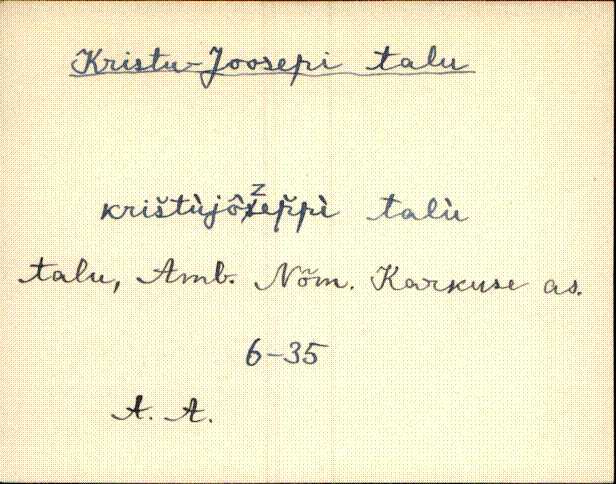 Kristu-Joosepi talu
krištùjôzep̌pì talù
talu, Amb. Nõm. Karkuse as.
6-35
A. A.